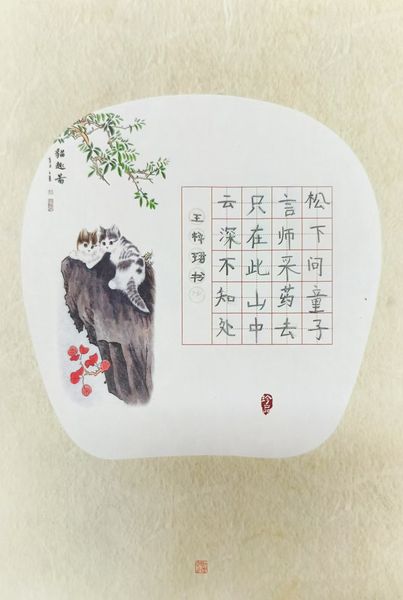 松下问童子
言师采药去
只在此山中
云深不知处
王梓珺书
猫趣图